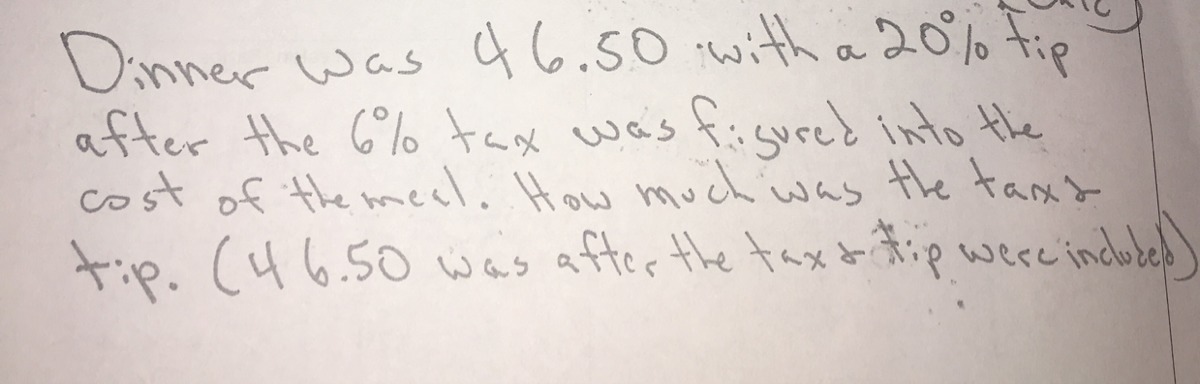 Dinner was 46.50 with a 20% tip
after the 6% tax was figured into the
cost of the meal. How much was the tax &
tip. (46.50 was after the tax & tip were included)